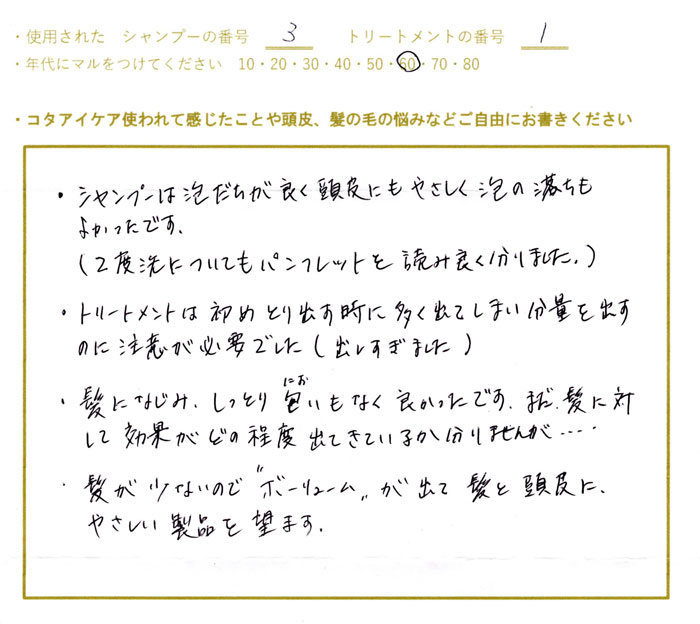 ・使用された シャンプーの番号 3 トリートメントの番号 1
・年代にマルをつけてください 10・20・30・40・50・60・70・80
・コタアイケア使われて感じたことや頭皮、髪の毛の悩みなどご自由にお書きください
・シャンプーは泡だちが良く頭皮にもやさしく泡の落ちも
よかったです。
(2度洗についてもパンフレットを読み良く分りました。)
・トリートメントは初めとり出す時に多く出てしまい分量を出す
のに注意が必要でした(出しすぎました)
にお
・髪になじみ、しっとり匂いもなく良かったです。まだ、髪に対
して効果がどの程度出てきているか分りませんが……
・髪が少ないので"ボーリューム"が出て髪と頭皮に、
やさしい製品を望ます。